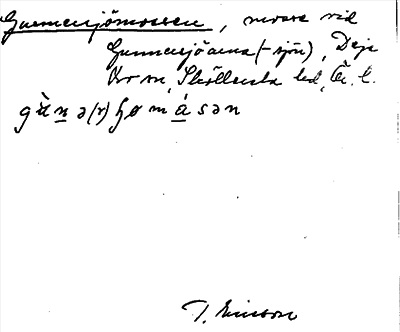 Gunnersjömossen, mosse vid
Gunnersjöarna (-sjön), Deje
kr o n, Sköllersta sn, Ör. l.
gùnə(r)ʃømåsən
T. Ericsson